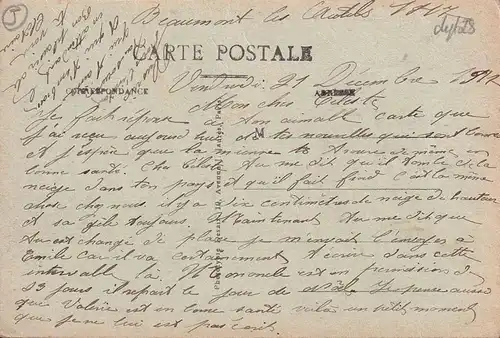 Beaumont les Autels 1917
CARTE POSTALE
CORRESPONDANCE
ADRESSE
Vendredi 21 Decembre 1917
Mon cher Celeste
Je fait reponse a ton aimable carte que
j'ai reçu aujourd'hui de tes nouvelles qui sont bonne
et j'espère que la mienne te trouvera de même en
bonne santé. Cher Celeste tu me dit qu'il tombe de la
neige dans ton pays et qu'il fait froid c'est la même
chose chez nous il y a dix centimètres de neige de hauteur
et sa gèle toujours. Maintenant tu me dit que
tu est changé de place je m'ençait l'envoyer a
Emile car il va certainement t'ecrire dans cette
intervalle là. Mon oncle est en permission de
13 jours il repart le jour de Noël. Je pense aussi
que Valérie est en bonne santé voila un petit moment
que je ne lui est pas écrit.